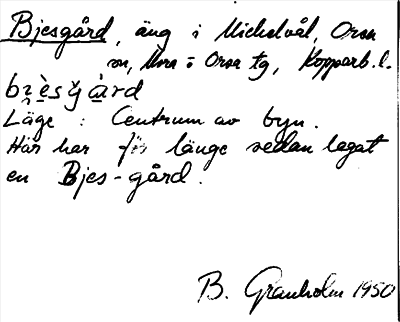 Bjesgård, äng i Michelvål, Orsa
sn, Mora o Orsa tg, Kopparb. l.
Läge : Centrum av byn.
Här har för länge sedan legat
en Bjes-gård.
B. Granholm 1950